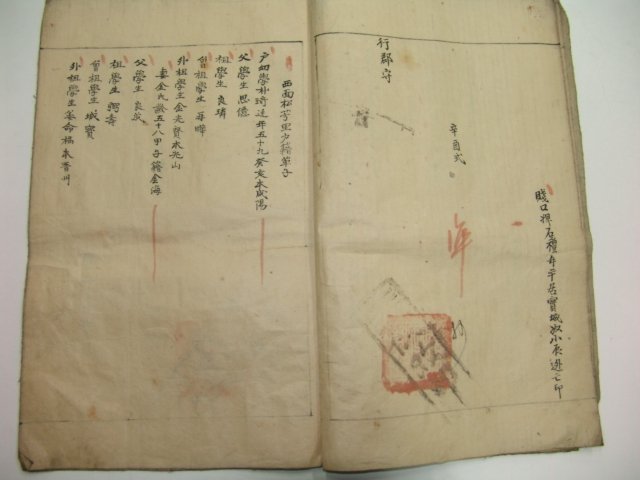 賤口婢石禮年平居寶城
辛酉式
行郡守
西面松芳里戶籍單子
戶幼學朴琦述年五十九癸亥本咸陽
父學生思億
祖學生良璘
曾祖學生
外祖學生金光賛本光山
妻金氏齡五十八甲子籍金海
父學生良成
祖學生
曾祖學生城寶
外祖學生姜命福本晋州